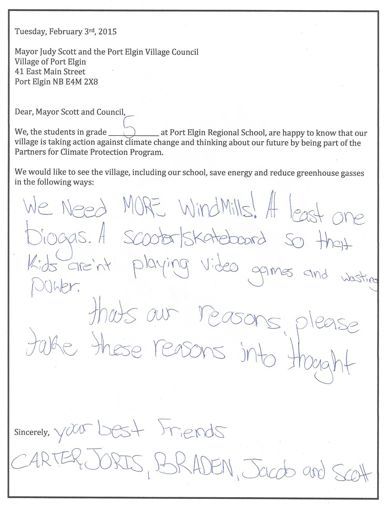 Tuesday, February 3rd, 2015
Mayor Judy Scott and the Port Elgin Village Council
Village of Port Elgin
41 East Main Street
Port Elgin NB E4M 2X8
Dear, Mayor Scott and Council,
We, the students in grade 5 at Port Elgin Regional School, are happy to know that our
village is taking action against climate change and thinking about our future by being part of the
Partners for Climate Protection Program.
We would like to see the village, including our school, save energy and reduce greenhouse gasses
in the following ways:
We Need MORE WindMills! At least one
biogas. A scooter/skateboard so that
Kids are'nt playing video games and wasting
power.
thats our reasons, please
take these reasons into thought
Sincerely, your best Friends
CARTER, JORIS, BRADEN, Jacob and Scott